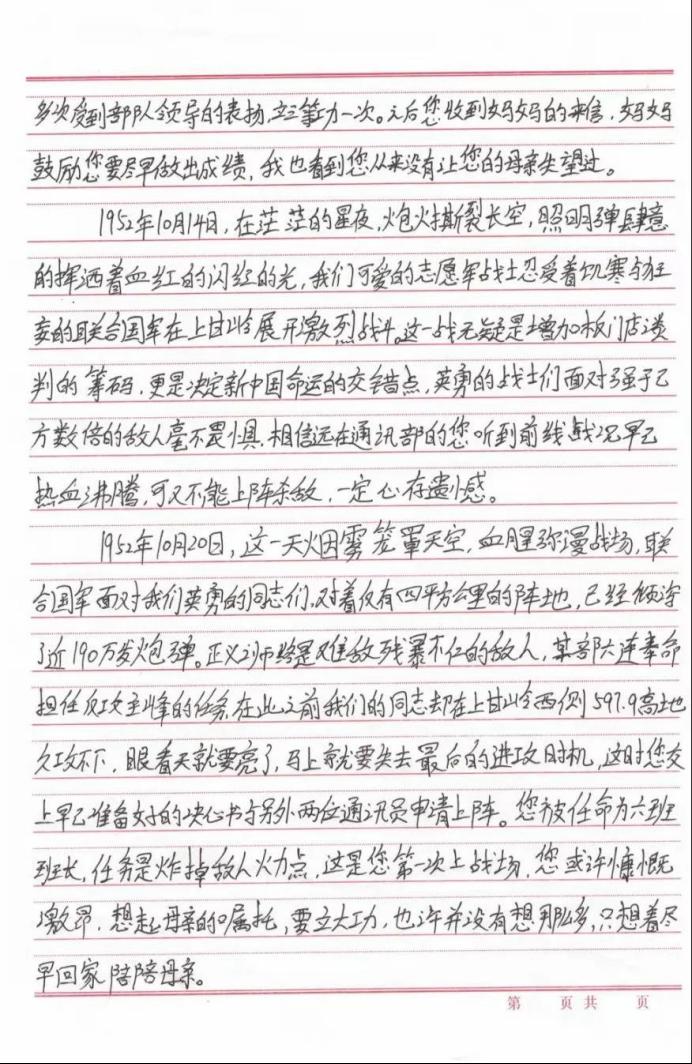 多次受到部队领导的表扬,立三等功一次。之后您收到妈妈的来信,妈妈
鼓励您要尽早做出成绩,我也看到您从来没有让您的母亲失望过。
1952年10月14日,在茫茫的星夜,炮火撕裂长空,照明弹肆意
的挥洒着血红的闪红的光,我们可爱的志愿军战士忍受着饥寒与狂
妄的联合国军在上甘岭展开激烈战斗。这一战无疑是增加板门店谈
判的筹码,更是决定新中国命运的交错点,英勇的战士们面对强于己
方数倍的敌人毫不畏惧,相信远在通讯部的您听到前线战况早已
热血沸腾,可又不能上阵杀敌,一定心存遗憾。
1952年10月20日,这一天烟雾笼罩天空,血腥弥漫战场,联
合国军面对我们英勇的同志们,对着仅有四平方公里的阵地,已经倾泻
了近190万发炮弹。正义之师终是难敌残暴不仁的敌人,某部六连奉命
担任反攻主峰的任务,在此之前我们的同志却在上甘岭西侧597.9高地
久攻不下,眼看天就要亮了,马上就要失去最后的进攻时机,这时您交
上早已准备好的决心书与另外两位通讯员申请上阵。您被任命为六班
班长,任务是炸掉敌人火力点,这是您第一次上战场,您或许慷慨
激昂,想起母亲的嘱托,要立大功,也许并没有想那么多,只想着尽
早回家陪陪母亲。
第 页 共 页